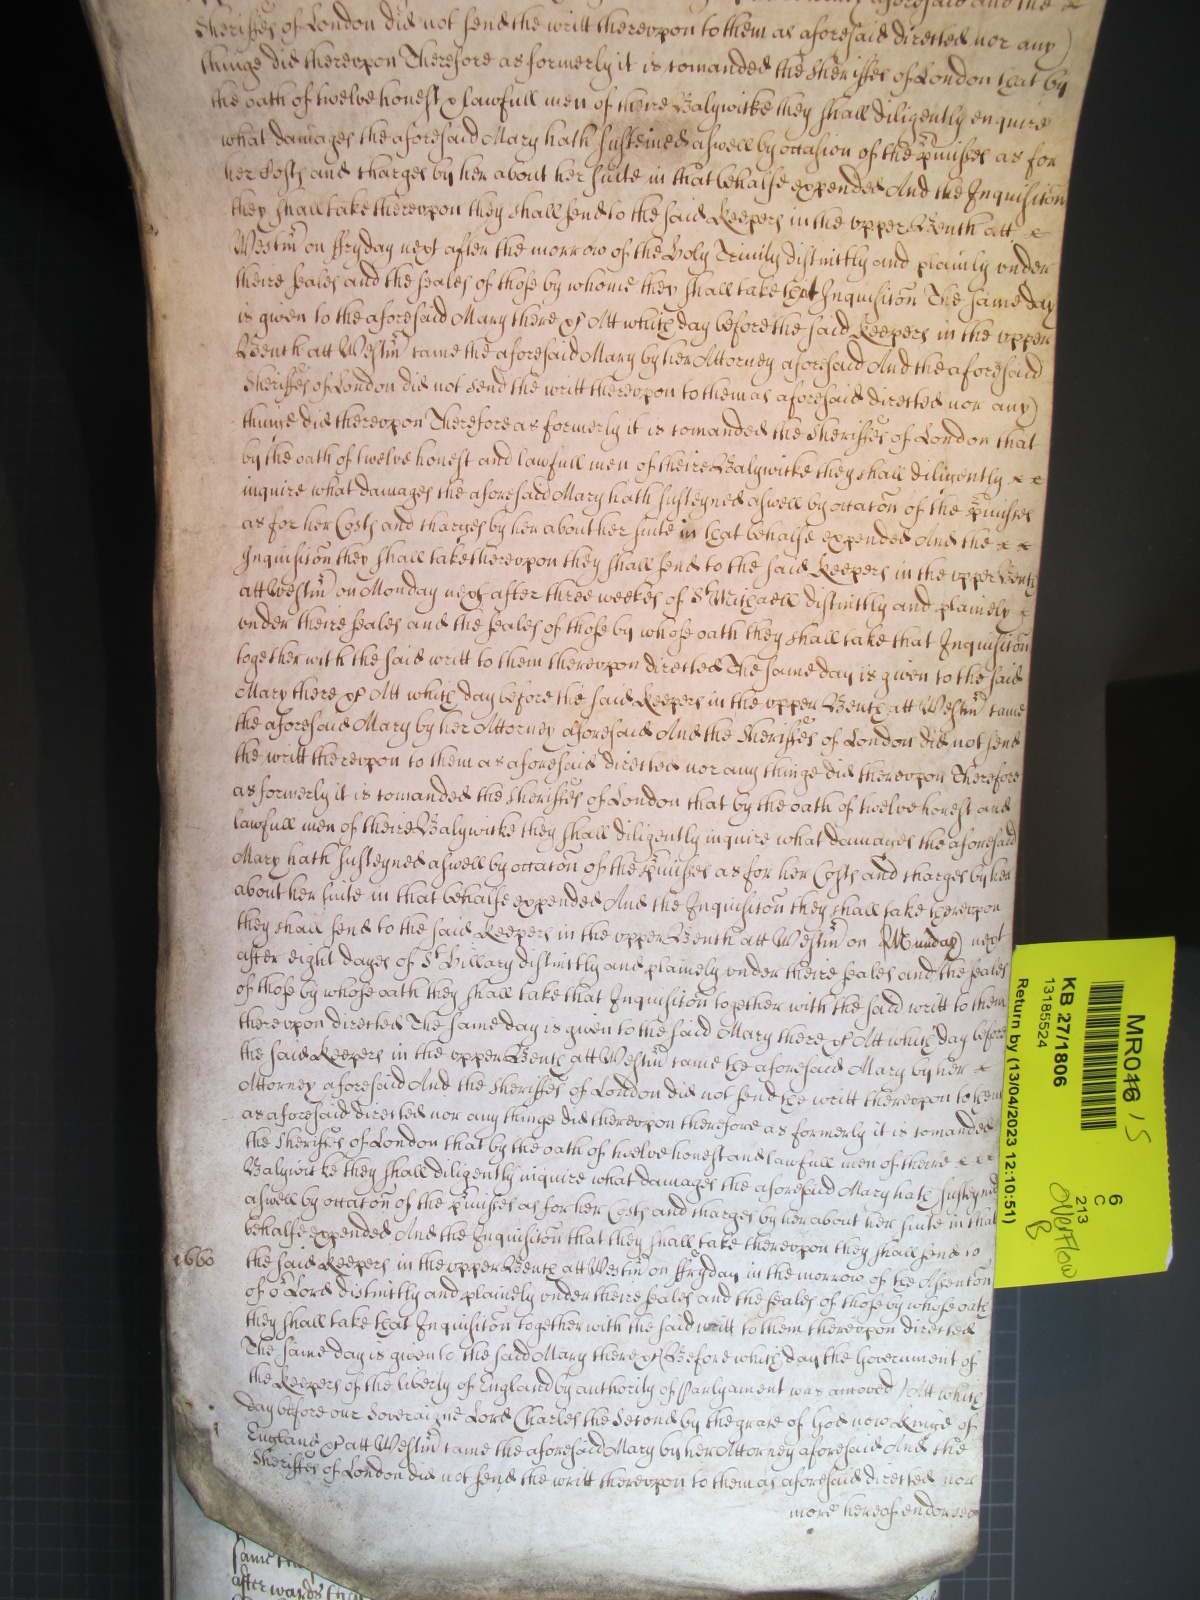 aforesaid and the
Sheriffes of London did not send the writt thereupon to them as aforesaid directed nor any
thinge did thereupon Therefore as formerly it is comanded the Sheriffes of London that by
the oath of twelve honest & lawfull men of theire Balywicke they shall diligently enquire
what damages the aforesaid Mary hath susteined aswell by occasion of the pmisses as for
her Costs and charges by her about her suite in that behalfe expended And the Inquisitōn
they shall take thereupon they shall send to the said Keepers in the upper Bench att
Westm̄ on ffryday next after the morrow of the Holy Trinity distinctly and plainly under
theire seales and the seales of those by whome they shall take that Inquisitōn The same day
is given to the aforesaid Mary there &c Att which day before the said Keepers in the upper
Bench att Westm̄ came the aforesaid Mary by her Attorney aforesaid And the aforesaid
Sheriffes of London did not send the writt thereupon to them as aforesaid directed nor any
thinge did thereupon Therefore as formerly it is comanded the Sheriffes of London that
by the oath of twelve honest and lawfull men of theire Balywicke they shall diligently
inquire what damages the aforesaid Mary hath susteyned aswell by occatōn of the pmisses
as for her Costs and charges by her about her suite in that behalfe expended And the
Inquisitōn they shall take thereupon they shall send to the said Keepers in the upper Bench
att Westm̄ on Monday next after three weekes of St Michaell distinctly and plainely
under theire seales and the seales of those by whose oath they shall take that Inquisitōn
together with the said writt to them thereupon directed The same day is given to the said
Mary there &c Att which day before the said Keepers in the upper Bench att Westm̄ came
the aforesaid Mary by her Attorney aforesaid And the Sheriffes of London did not send
the writt thereupon to them as aforesaid directed nor any thinge did thereupon Therefore
as formerly it is comanded the Sheriffes of London that by the oath of twelve honest and
lawfull men of theire Balywicke they shall diligently inquire what damages the aforesaid
Mary hath susteyned aswell by occatōn of the pmisses as for her Costs and charges by her
about her suite in that behalfe expended And the Inquisitōn they shall take thereupon
they shall send to the said Keepers in the upper Bench att Westm̄ on Munday next
after eight dayes of St Hillary distinctly and plainely under theire seales and the seales
of those by whose oath they shall take that Inquisitōn together with the said writt to them
thereupon directed The same day is given to the said Mary there &c Att which day before
the said Keepers in the upper Bench att Westm̄ came the aforesaid Mary by her
Attorney aforesaid And the Sheriffes of London did not send the writt thereupon to them
as aforesaid directed nor any thinge did thereupon therefore as formerly it is comanded
the Sheriffes of London that by the oath of twelve honest and lawfull men of theire
Balywicke they shall diligently inquire what damages the aforesaid Mary hath susteyned
aswell by occatōn of the pmisses as for her Costs and charges by her about her suite in that
behalfe expended And the Inquisitōn that they shall take thereupon they shall send to
1660 the said Keepers in the upper Bench att Westm̄ on ffryday in the morrow of the Assention
of oʳ Lord distinctly and plainely under theire seales and the seales of those by whose oath
they shall take that Inquisitōn together with the said writt to them thereupon directed
The same day is given to the said Mary there &c Before which day the Government of
the Keepers of the liberty of England by authority of Parlyament was amoved Att which
day before our Soveraigne Lord Charles the Second by the grace of God now Kinge of
England &c att Westm̄ came the aforesaid Mary by her Attorney aforesaid And the
Sheriffes of London did not send the writt thereupon to them as aforesaid directed nor
more hereof endorsed
same
afterwards
MR046 / S
KB 27/1806
13185524
Return by (13/04/2023 12:10:51)
6
C
213
Overflow
B